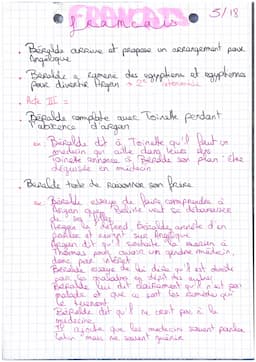 Français
5/18
• Béralde arrive et propose un arrangement pour
Angélique
• Béralde a emmené des egyptiens et egyptiennes
pour divertir Argan → 2e intermède
• Acte III =
• Béralde complote avec Toinette pendant
l'absence d'argan
ex: Béralde dit à Toinette qu'il faut un
médecin qui aille dans leurs
Toinette annonce à Béralde son plan: être
déguisée en médecin
• Béralde tente de raisonner son frère
ex: Béralde essaye de faire comprendre à
Argan que Béline veut se débarrasser
de ses filles
Argan la défend Béralde arrête d'en
parler et revient sur Angélique
Argan dit qu'il souhaite la marier à
Thomas pour avoir un gendre médecin,
donc par intérêt
Béralde essaye de lui dire qu'il est
pour les au dépit des autres
Béralde lui dit clairement qu'il n'est pas
malade et que ce sont les remèdes qui
le tueront
Béralde dit qu'il ne croit pas à la
médecine
Il ajoute que les médecins savent parler
latin mais ne savent guérir